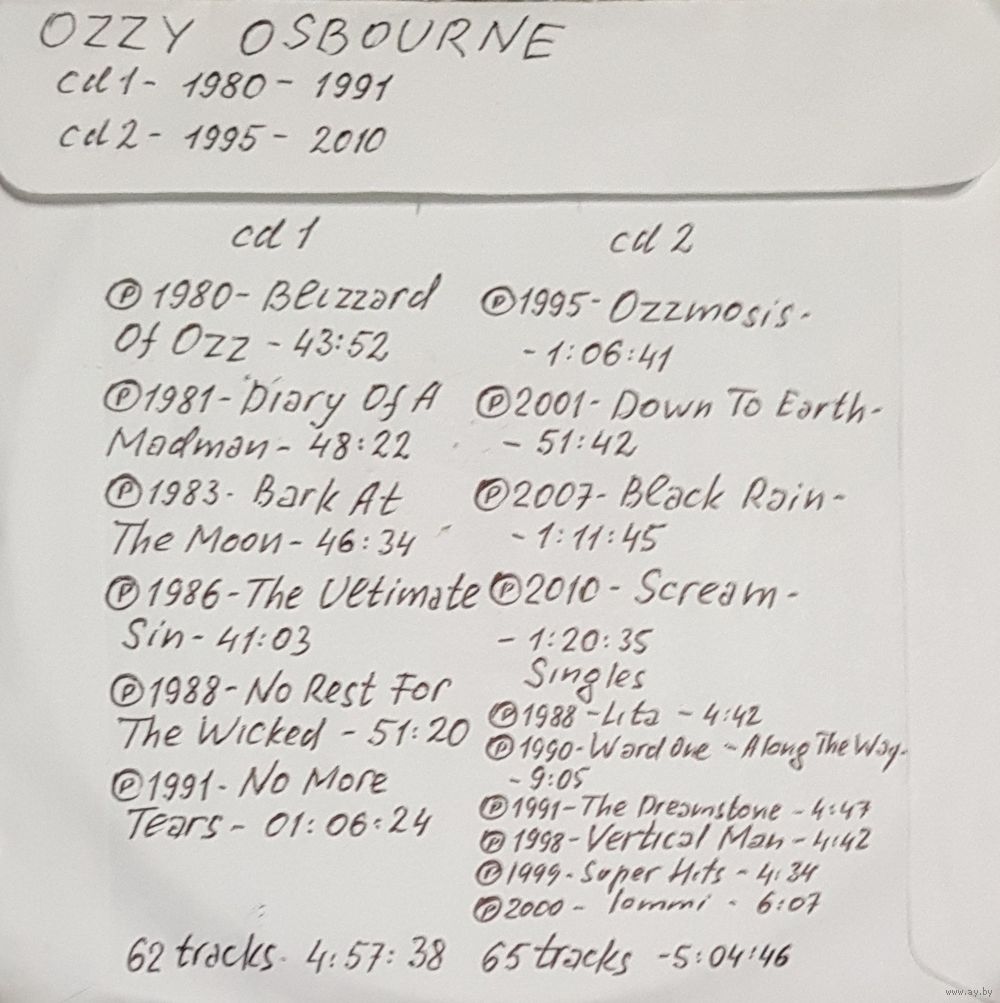 OZZY OSBOURNE
cd 1 - 1980 - 1991
cd 2 - 1995 - 2010
cd 1
℗ 1980 - Blizzard
Of Ozz - 43:52
℗ 1981 - Diary Of A
Madman - 48:22
℗ 1983 - Bark At
The Moon - 46:34
℗ 1986 - The Ultimate
Sin - 41:03
℗ 1988 - No Rest For
The Wicked - 51:20
℗ 1991 - No More
Tears - 01:06:24
62 tracks - 4:57:38
cd 2
℗ 1995 - Ozzmosis -
- 1:06:41
℗ 2001 - Down To Earth -
- 51:42
℗ 2007 - Black Rain -
- 1:11:45
℗ 2010 - Scream -
- 1:20:35
Singles
℗ 1988 - Lita - 4:42
℗ 1990 - Ward One - Along The Way -
- 9:05
℗ 1991 - The Dreamstone - 4:47
℗ 1998 - Vertical Man - 4:42
℗ 1999 - Super Hits - 4:34
℗ 2000 - Iommi - 6:07
65 tracks - 5:04:46
www.ay.by